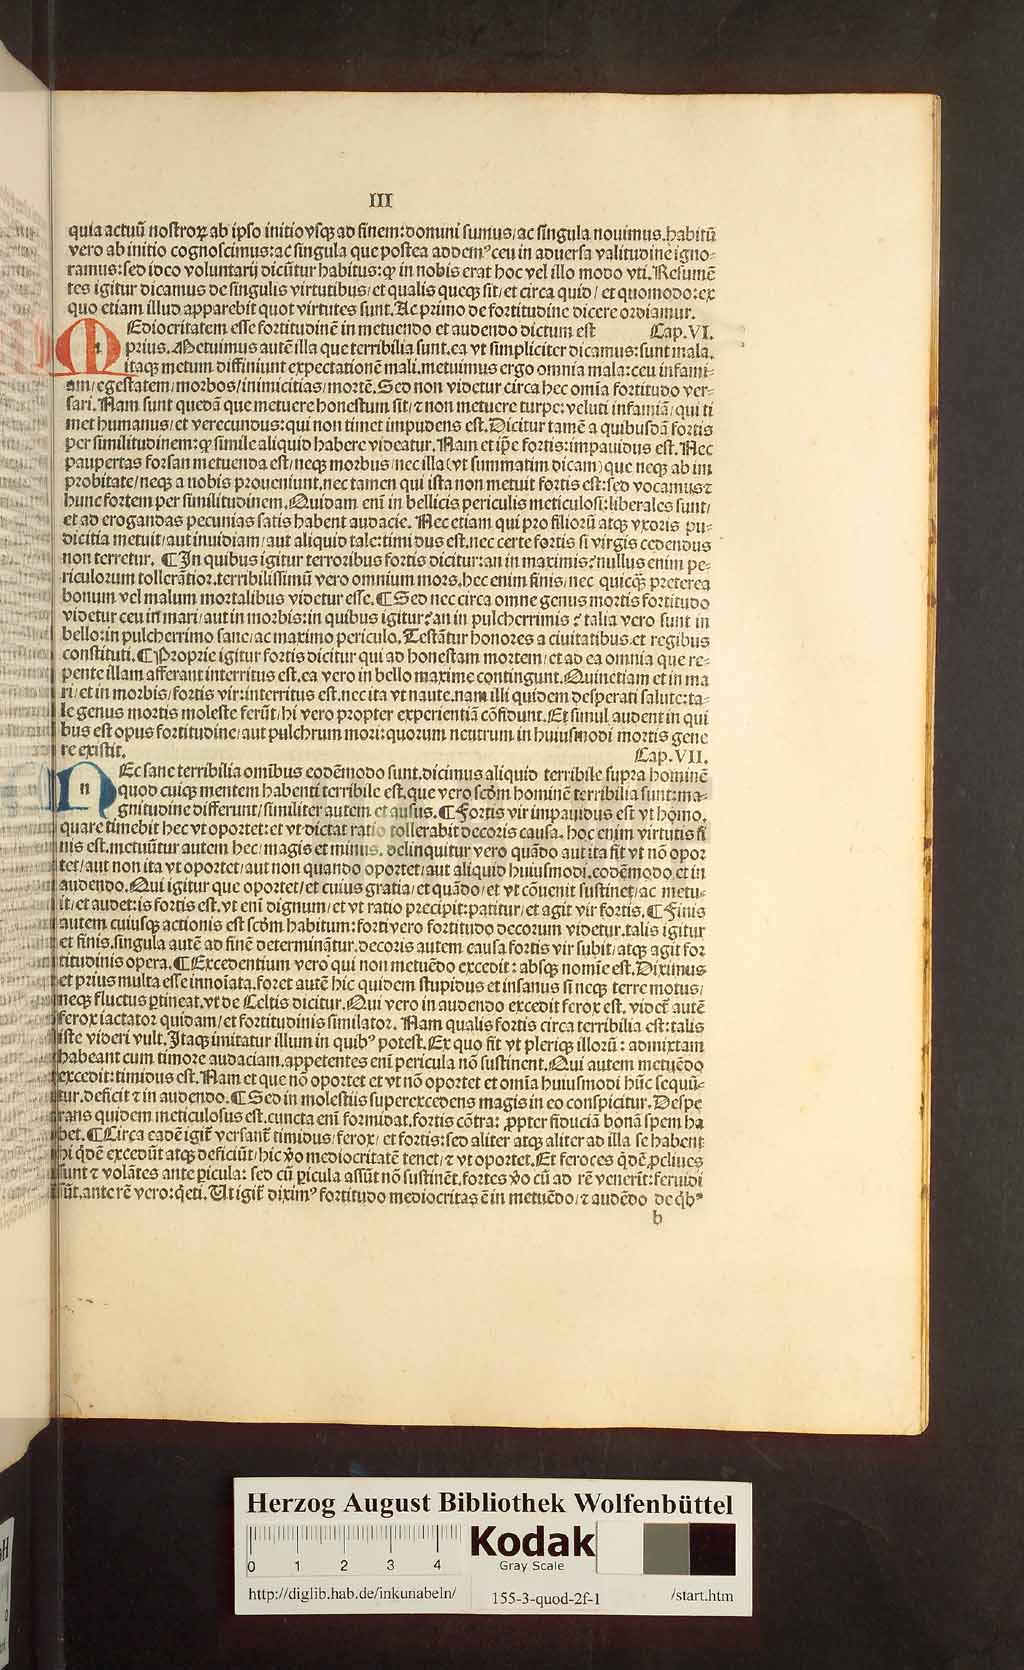 III
quia actuũ nostroꝝ ab ipso initio vsqꝫ ad finem: domini sumus/ ac singula nouimus. habitũ
vero ab initio cognoscimus: ac singula que postea addemꝰ ceu in aduersa valitudine igno⸗
ramus: sed ideo voluntarij dicũtur habitus: qꝫ in nobis erat hoc vel illo modo vti. Resumẽ
tes igitur dicamus de singulis virtutibus/ et qualis queqꝫ sit/ et circa quid/ et quomodo: ex
quo etiam illud apparebit quot virtutes sunt. Ac primo de fortitudine dicere ordiamur.
MEdiocritatem esse fortitudinẽ in metuendo et audendo dictum est Cap. VI.
prius. Metuimus autẽ illa que terribilia sunt. ea vt simpliciter dicamus: sunt mala.
itaqꝫ metum diffiniunt expectationẽ mali. metuimus ergo omnia mala: ceu infami⸗
am/ egestatem/ morbos/ inimicitias/ mortẽ. Sed non videtur circa hec om̃ia fortitudo ver⸗
sari. Nam sunt quedã que metuere honestum sit/ ⁊ non metuere turpe: veluti infamiã/ qui ti
met humanus/ et verecundus: qui non timet impudens est. Dicitur tamẽ a quibusdã fortis
per similitudinem: qꝫ simile aliquid habere videatur. Nam et ip̃e fortis: impauidus est. Nec
paupertas forsan metuenda est/ neqꝫ morbus/ nec illa (vt summatim dicam) que neqꝫ ab im
probitate/ neqꝫ a nobis proueniunt. nec tamen qui ista non metuit fortis est: sed vocamus ⁊
hunc fortem per similitudinem. Quidam eni᷉ in bellicis periculis meticulosi: liberales sunt/
et ad erogandas pecunias satis habent audacie. Nec etiam qui pro filiorũ atqꝫ vxoris pu⸗
dicitia metuit/ aut inuidiam/ aut aliquid tale: timidus est. nec certe fortis si virgis cedendus
non terretur. ¶ In quibus igitur terroribus fortis dicitur: an in maximis? nullus enim pe⸗
riculorum tollerãtior. terribilissimũ vero omnium mors. hec enim finis/ nec quicqꝫ preterea
bonum vel malum mortalibus videtur esse. ¶ Sed nec circa omne genus mortis fortitudo
videtur ceu in mari/ aut in morbis: in quibus igitur? an in pulcherrimis? talia vero sunt in
bello: in pulcherrimo sane/ ac maximo periculo. Testãtur honores a ciuitatibus. et regibus
constituti. ¶ Proprie igitur fortis dicitur qui ad honestam mortem/ et ad ea omnia que re⸗
pente illam afferant interritus est. ea vero in bello maxime contingunt. Quinetiam et in ma
ri/ et in morbis/ fortis vir: interritus est. nec ita vt naute. nam illi quidem desperati salute: ta⸗
le genus mortis moleste ferũt/ hi vero propter experientiã cõfidunt. Et simul audent in qui
bus est opus fortitudine/ aut pulchrum mori: quorum neutrum in huiusmodi mortis gene
re existit. Cap. VII.
NEc sane terribilia om̃ibus eodẽmodo sunt. dicimus aliquid terribile supra hominẽ
quod cuiqꝫ mentem habenti terribile est. que vero scd᷉m hominẽ terribilia sunt: ma⸗
gnitudine differunt/ similiter autem et ausus. ¶ Fortis vir impauidus est vt homo.
quare timebit hec vt oportet: et vt dictat ratio tollerabit decoris causa. hoc enim virtutis fi
nis est. metuũtur autem hec/ magis et minus. delinquitur vero quãdo aut ita fit vt nõ opor
tet/ aut non ita vt oportet/ aut non quando oportet/ aut aliquid huiusmodi. eodẽmodo et in
audendo. Qui igitur que oportet/ et cuius gratia/ et quãdo/ et vt cõuenit sustinet/ ac metu⸗
it/ et audet: is fortis est. vt eni᷉ dignum/ et vt ratio precipit: patitur/ et agit vir fortis. ¶ Finis
autem cuiusqꝫ actionis est scd᷉m habitum: forti vero fortitudo decorum videtur. talis igitur
et finis. singula autẽ ad finẽ determinãtur. decoris autem causa fortis vir subit/ atqꝫ agit for
titudinis opera. ¶ Excedentium vero qui non metuẽdo excedit: absqꝫ nomi᷉e est. Diximus
et prius multa esse innoi᷉ata. foret autẽ hic quidem stupidus et insanus si neqꝫ terre motus/
neqꝫ fluctus ꝑtineat. vt de Celtis dicitur. Qui vero in audendo excedit ferox est. videt᷉ autẽ
ferox iactator quidam/ et fortitudinis similator. Nam qualis fortis circa terribilia est: talis
iste videri vult. Itaqꝫ imitatur illum in quibꝰ potest. Ex quo fit vt pleriqꝫ illorũ: admixtam
habeant cum timore audaciam. appetentes eni᷉ pericula nõ sustinent. Qui autem metuẽdo
excedit: timidus est. Nam et que nõ oportet et vt nõ oportet et om̃ia huiusmodi hũc sequũ⸗
tur. deficit ⁊ in audendo. ¶ Sed in molestiis superexcedens magis in eo conspicitur. Despe
rans quidem meticulosus est. cuncta eni᷉ formidat. fortis cõtra: ꝓpter fiduciã bonã spem ha
bet. ¶ Circa eadẽ igit᷉ versant᷉ timidus/ ferox/ et fortis: sed aliter atqꝫ aliter ad illa se habent
hi q̇dẽ excedũt atqꝫ deficiũt/ hic v̊o mediocritatẽ tenet/ ⁊ vt oportet. Et feroces q̇dẽ ꝓcliues
sunt ⁊ volãtes ante ꝑicula: sed cũ ꝑicula assũt nõ sustinẽt. fortes v̊o cũ ad rẽ venerit: feruidi
sũt. ante rẽ vero: q̇eti. Ut igit᷉ diximꝰ fortitudo mediocritas ẽ in metuẽdo/ ⁊ audẽdo de q̇bꝰ
b
Herzog August Bibliothek Wolfenbüttel
0 1 2 3 4
Kodak
Gray Scale
http://diglib.hab.de/inkunabeln/ 155-3-quod-2f-1 /start.htm